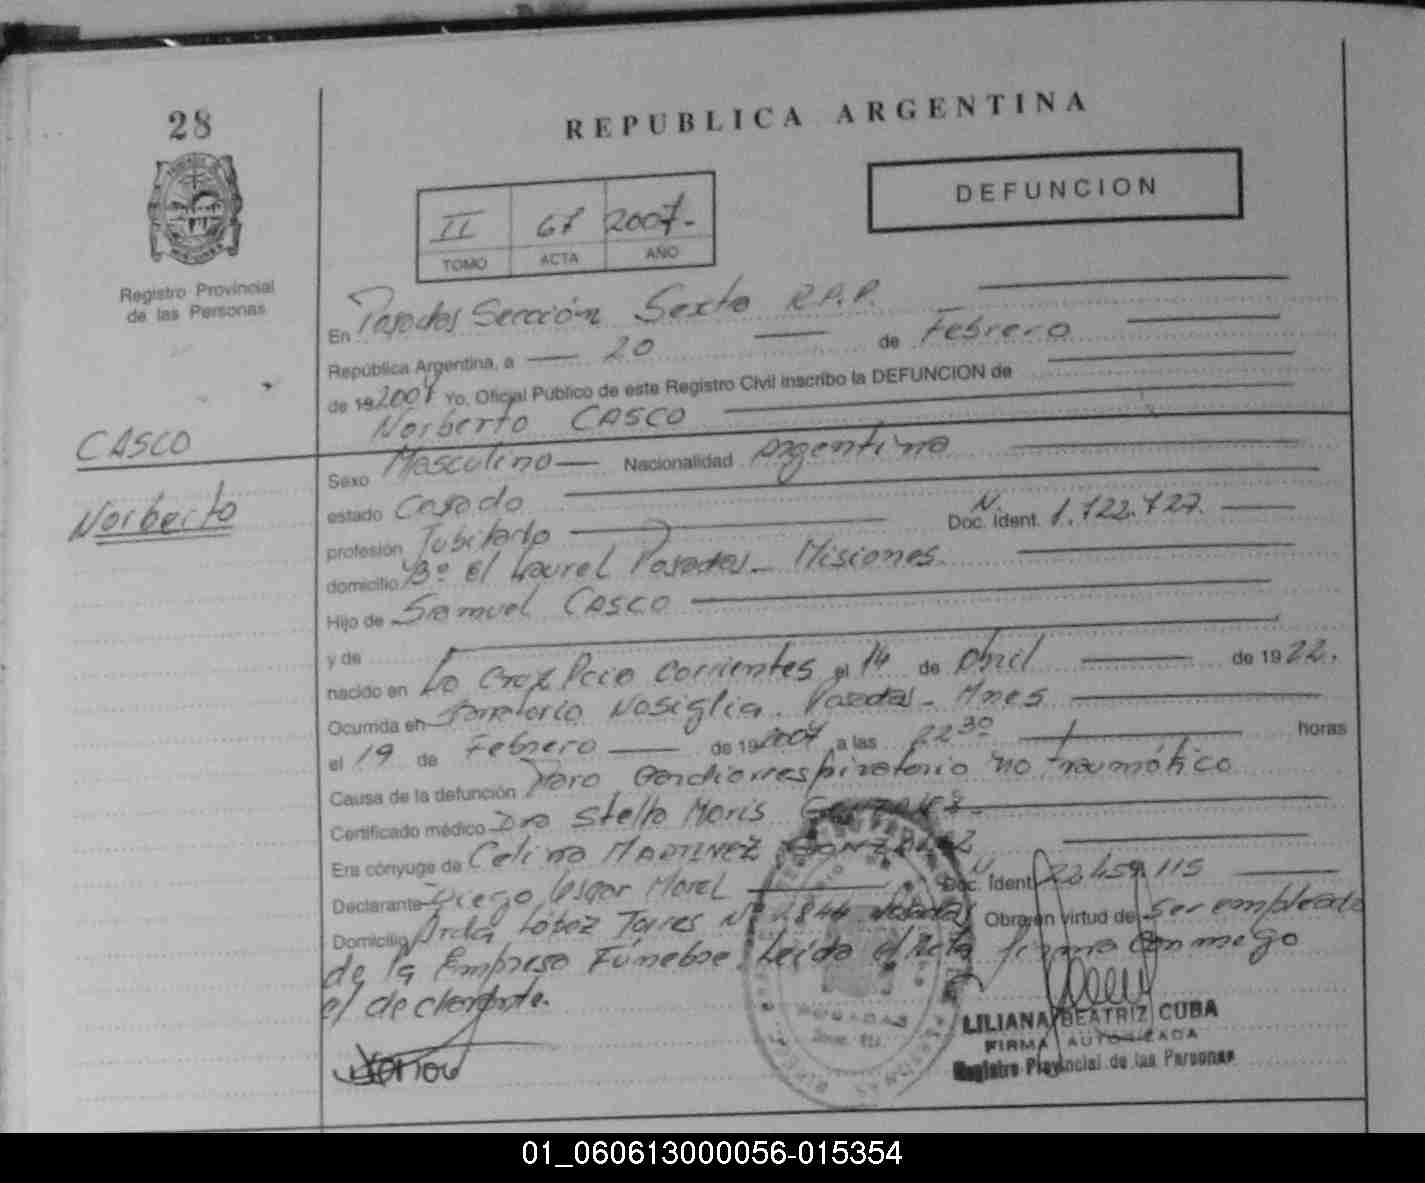 28
REPUBLICA ARGENTINA
DEFUNCION
II 67 2007.-
TOMO ACTA AÑO
Registro Provincial
de las Personas
En Posadas Sección Sexta R.P.P.
República Argentina, a 20 de Febrero
de 19 2007 Yo, Oficial Público de este Registro Civil inscribo la DEFUNCION de
Norberto CASCO
CASCO
Norberto
Sexo Masculino Nacionalidad Argentina
estado Casado
profesión Jubilado Doc. Ident. N. 1.722.727.
domicilio Bº El Laurel Posadas - Misiones.
Hijo de Samuel CASCO
y de
nacido en La Cruz Pcia Corrientes el 14 de Abril de 1922.
Ocurrida en Sanatorio Nosiglia. Posadas - Mnes
el 19 de Febrero de 19 2007 a las 22 30 horas
Causa de la defunción Paro Cardiorrespiratorio no traumático
Certificado médico Dra Stella Maris González
Era cónyuge de Celina MARTINEZ GONZALEZ
Declarante Diego Oscar Morel Doc. Ident. N. 22.459.115
Domicilio Avda López Torres Nº 1844 Posadas Obra en virtud de Ser empleado
de la Empresa Fúnebre. Leída el Acta firma conmigo
el declarante.
LILIANA BEATRIZ CUBA
FIRMA AUTORIZADA
Registro Provincial de las Personas
POSADAS
01_060613000056-015354